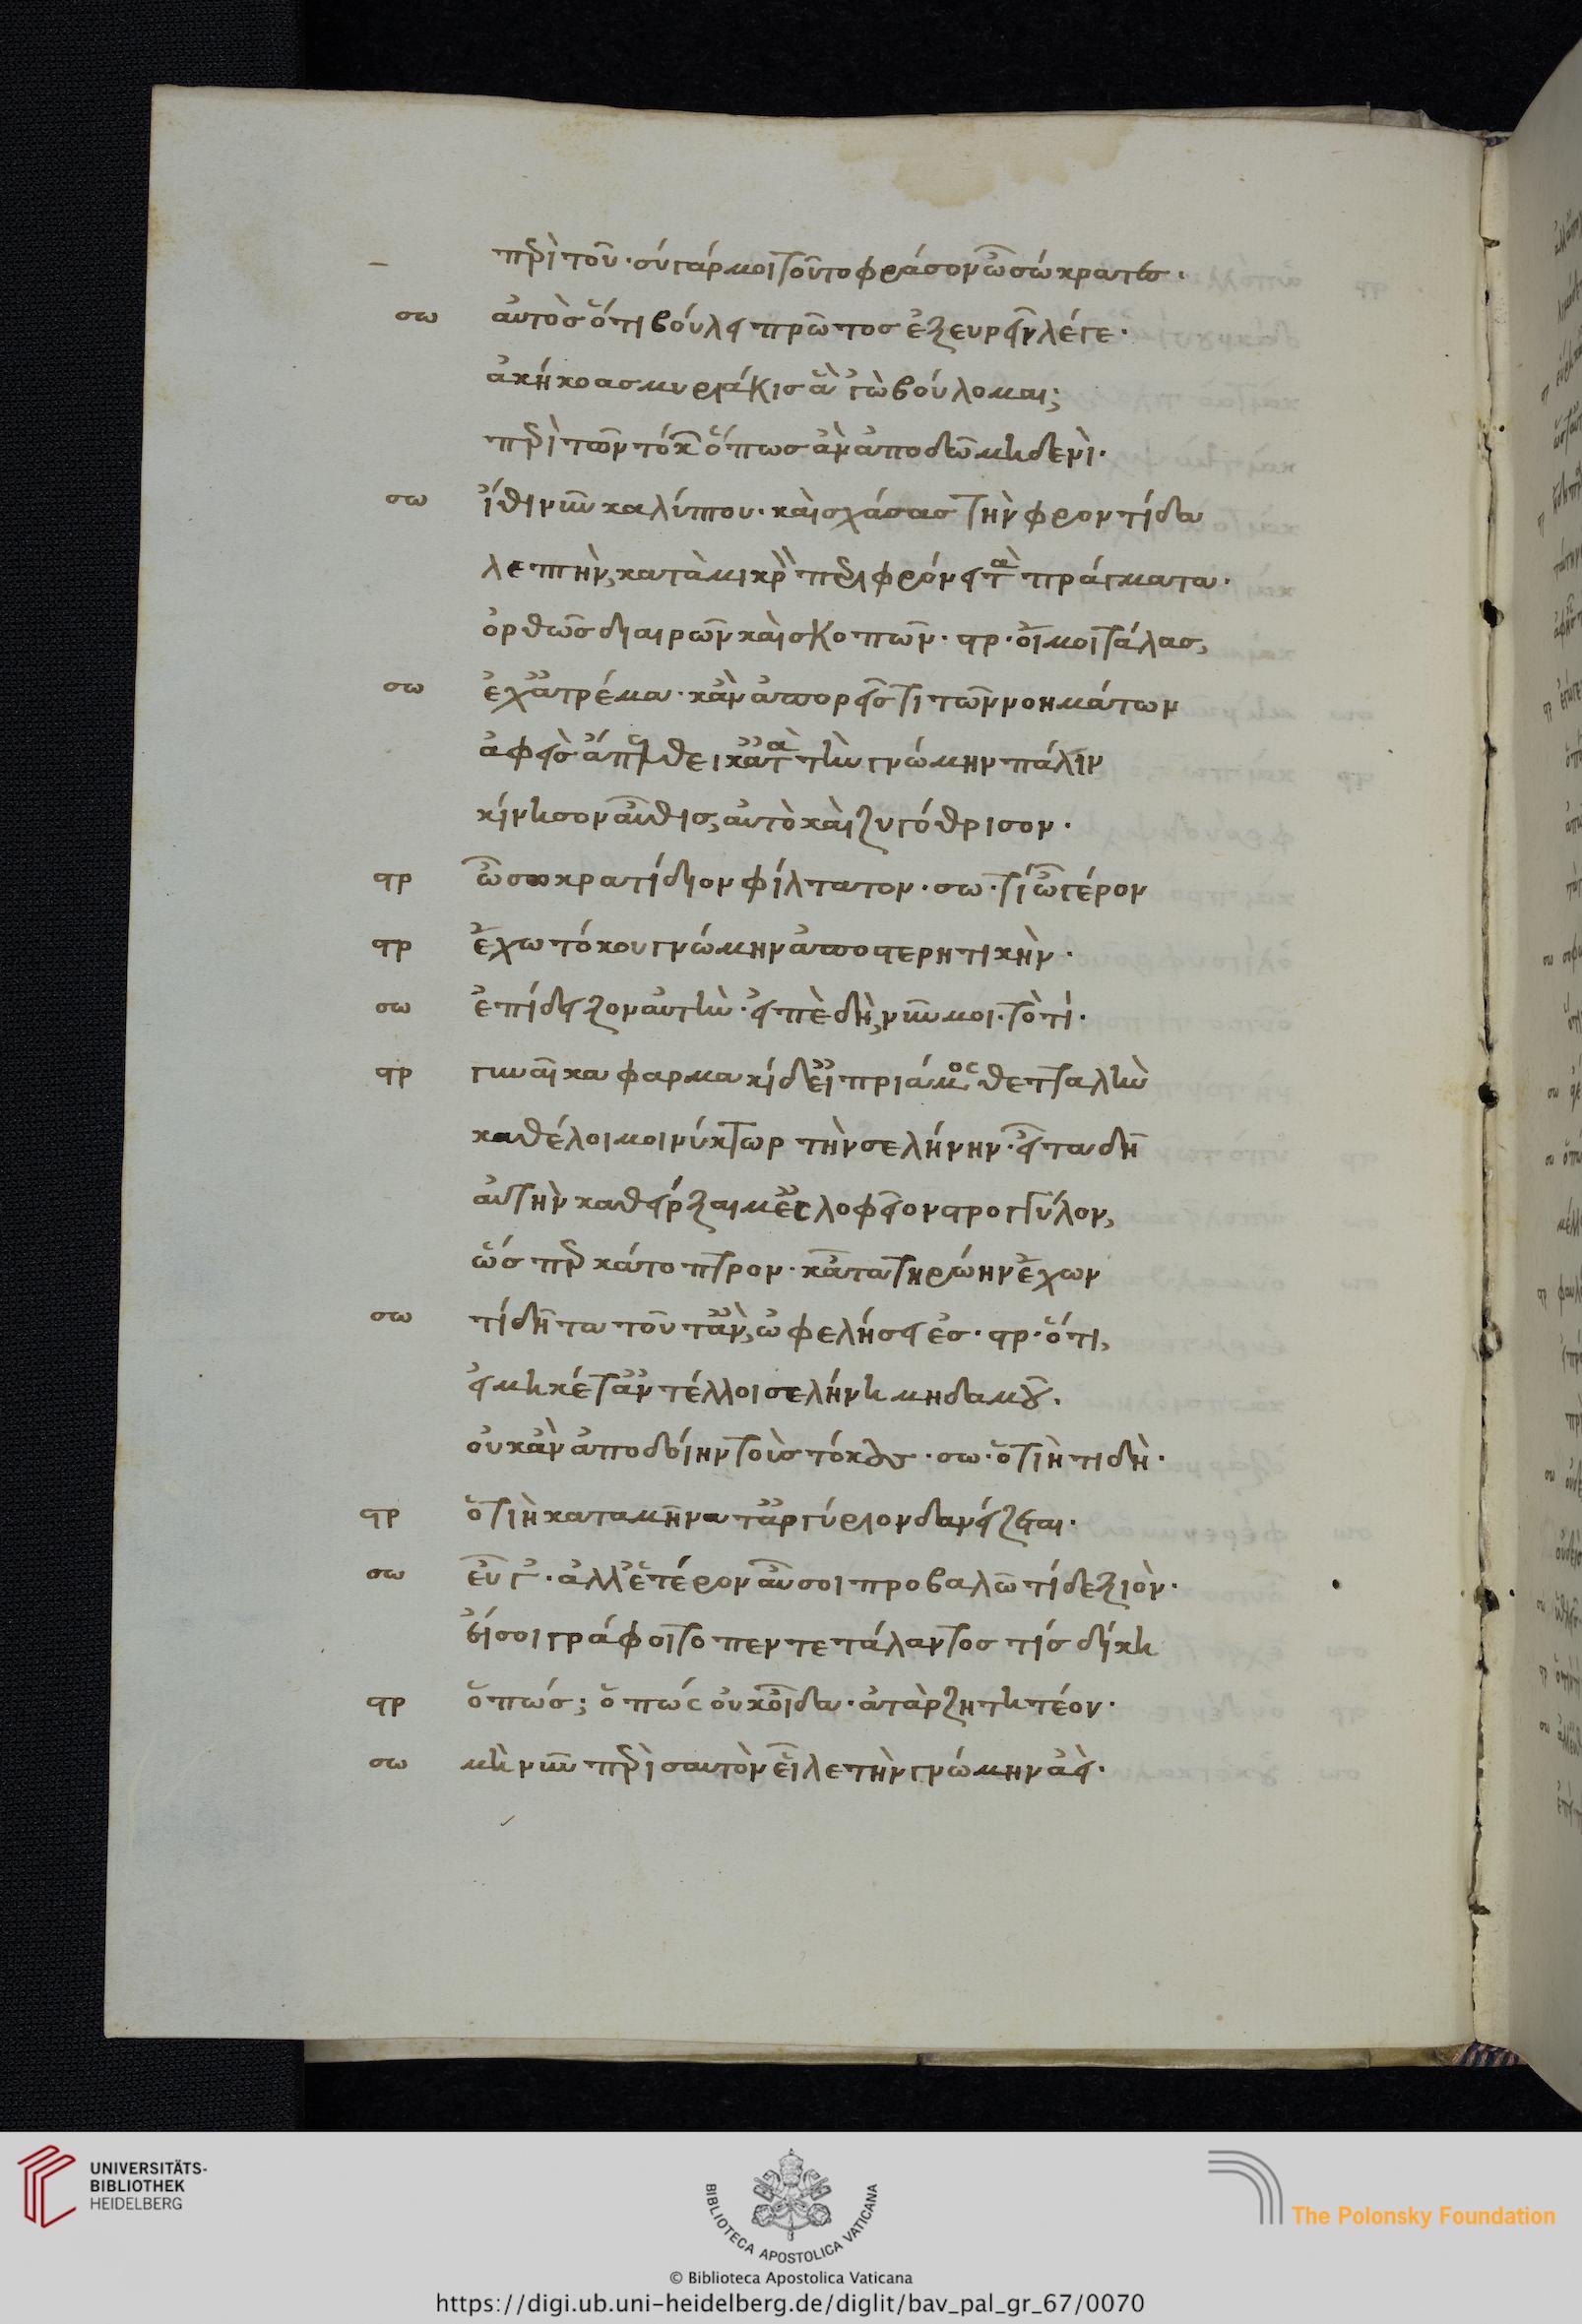 – περὶ του· σὺ γάρ μοι τοῦτο φράσον ὦ σώκρατες·
σω αὐτὸς ὅτι βούλει πρῶτος ἐξευρεῖν λέγε·
ἀκήκοας μυριάκις ἃ 'γὼ βούλομαι;
περὶ τῶν τόκων ὅπως ἂν ἀποδῶ μηδενί·
σω ἴθι νῦν καλύπτου· καὶ σχάσας τὴν φροντίδα
λεπτὴν, κατὰ μικρὸν περιφρόνει τὰ πράγματα·
ὀρθῶς διαιρῶν καὶ σκοπῶν· στρ· οἴμοι τάλας,
σω ἔχ' ἀτρέμα· κἂν ἀπορεῖς τι τῶν νοημάτων
ἀφεὶς ἄπελθε· κᾆτα τὴν γνώμην πάλιν
κίνησον αὖθις, αὐτὸ καὶ ζυγόθρισον·
στρ ὦ σωκρατίδιον φίλτατον· σω· τί ὦ γέρον
στρ ἔχω τόκου γνώμην ἀποστερητικὴν·
σω ἐπίδειξον αὐτὴν· εἰπὲ δὴ, νῦν μοι· τὸ τί·
στρ γυναῖκα φαρμακίδ' εἰ πριάμενος θετταλὴν
καθέλοιμι νύκτωρ τὴν σελήνην· εἶτα δὴ
αὐτὴν καθείρξαιμ' ἐς λοφεῖον στρογγύλον,
ὥσπερ κάτοπτρον· κᾆτα τηρώην ἔχων
σω τί δῆτα τοῦτ' ἂν, ὠφελήσειέ σ'· στρ· ὅτι,
εἰ μηκέτ' ἀντέλλοι σελήνη μηδαμοῦ·
οὐκ ἂν ἀποδοίην τοὺς τόκους· σω· ὁτιὴ τί δὴ·
στρ ὁτιὴ κατα μῆνα τἀργύριον δανείζεται·
σω εὖ γ'· ἀλλ' ἕτερον αὖ σοι προβαλῶ τί δεξιὸν·
εἴ σοι γράφοιτο πεντετάλαντος τίς δίκη
στρ ὅπως; ὅπως οὐκ οἶδα· ἀτὰρ ζητητέον·
σω μὴ νῦν περὶ σαυτὸν εἶλε τὴν γνώμην ἀεί·
UNIVERSITÄTS-
BIBLIOTHEK
HEIDELBERG
BIBLIOTECA APOSTOLICA VATICANA
The Polonsky Foundation
© Biblioteca Apostolica Vaticana
https://digi.ub.uni-heidelberg.de/diglit/bav_pal_gr_67/0070